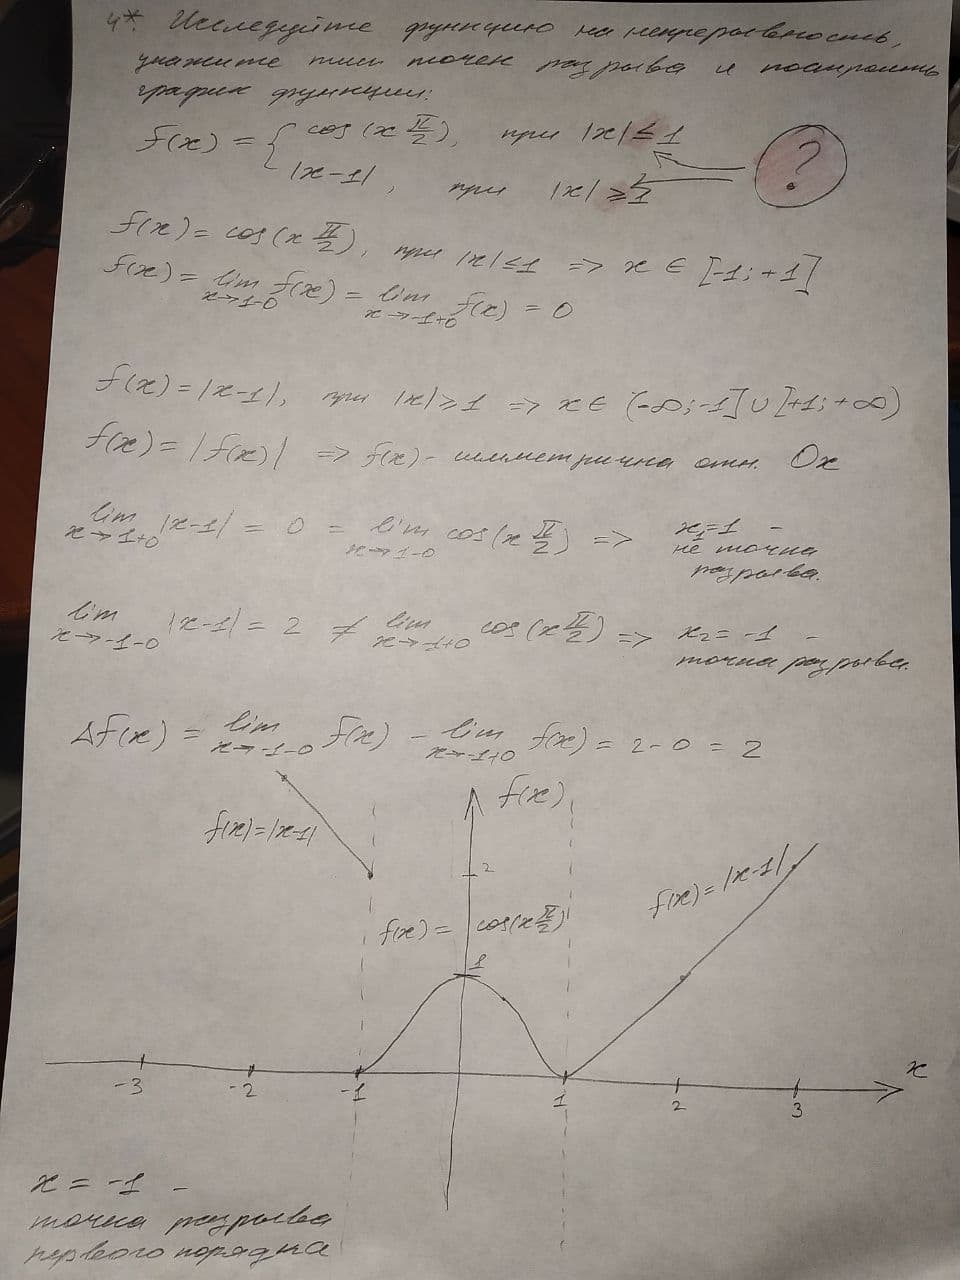 4*. Исследуйте функцию на непрерывность,
укажите тип точек разрыва и построить
график функции:
f(x) = { cos(x π/2), при |x| ≤ 1
|x-1|, при |x| ≥ 1
?
f(x) = cos(x π/2), при |x| ≤ 1 => x ∈ [-1; +1]
f(x) = lim x→1-0 f(x) = lim x→-1+0 f(x) = 0
f(x) = |x-1|, при |x| ≥ 1 => x ∈ (-∞; -1] ∪ [+1; +∞)
f(x) = |f(x)| => f(x) - симметрична отн. Ox
lim x→1+0 |x-1| = 0 = lim x→1-0 cos(x π/2) => x₁=1 -
не точка
разрыва.
lim x→-1-0 |x-1| = 2 ≠ lim x→-1+0 cos(x π/2) => x₂ = -1 -
точка разрыва.
Δf(x) = lim x→-1-0 f(x) - lim x→-1+0 f(x) = 2 - 0 = 2
f(x)
f(x)=|x-1|
2
f(x) = |x-1|
f(x) = cos(x π/2)
1
x
-3 -2 -1 1 2 3
x = -1 -
точка разрыва
первого порядка